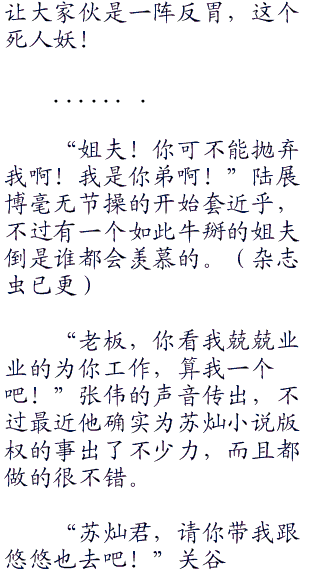 让大家伙是一阵反胃，这个
死人妖！
······ ·
“姐夫！你可不能抛弃
我啊！我是你弟啊！”陆展
博毫无节操的开始套近乎，
不过有一个如此牛掰的姐夫
倒是谁都会羡慕的。（杂志
虫已更）
“老板，你看我兢兢业
业的为你工作，算我一个
吧！”张伟的声音传出，不
过最近他确实为苏灿小说版
权的事出了不少力，而且都
做的很不错。
“苏灿君，请你带我跟
悠悠也去吧！”关谷